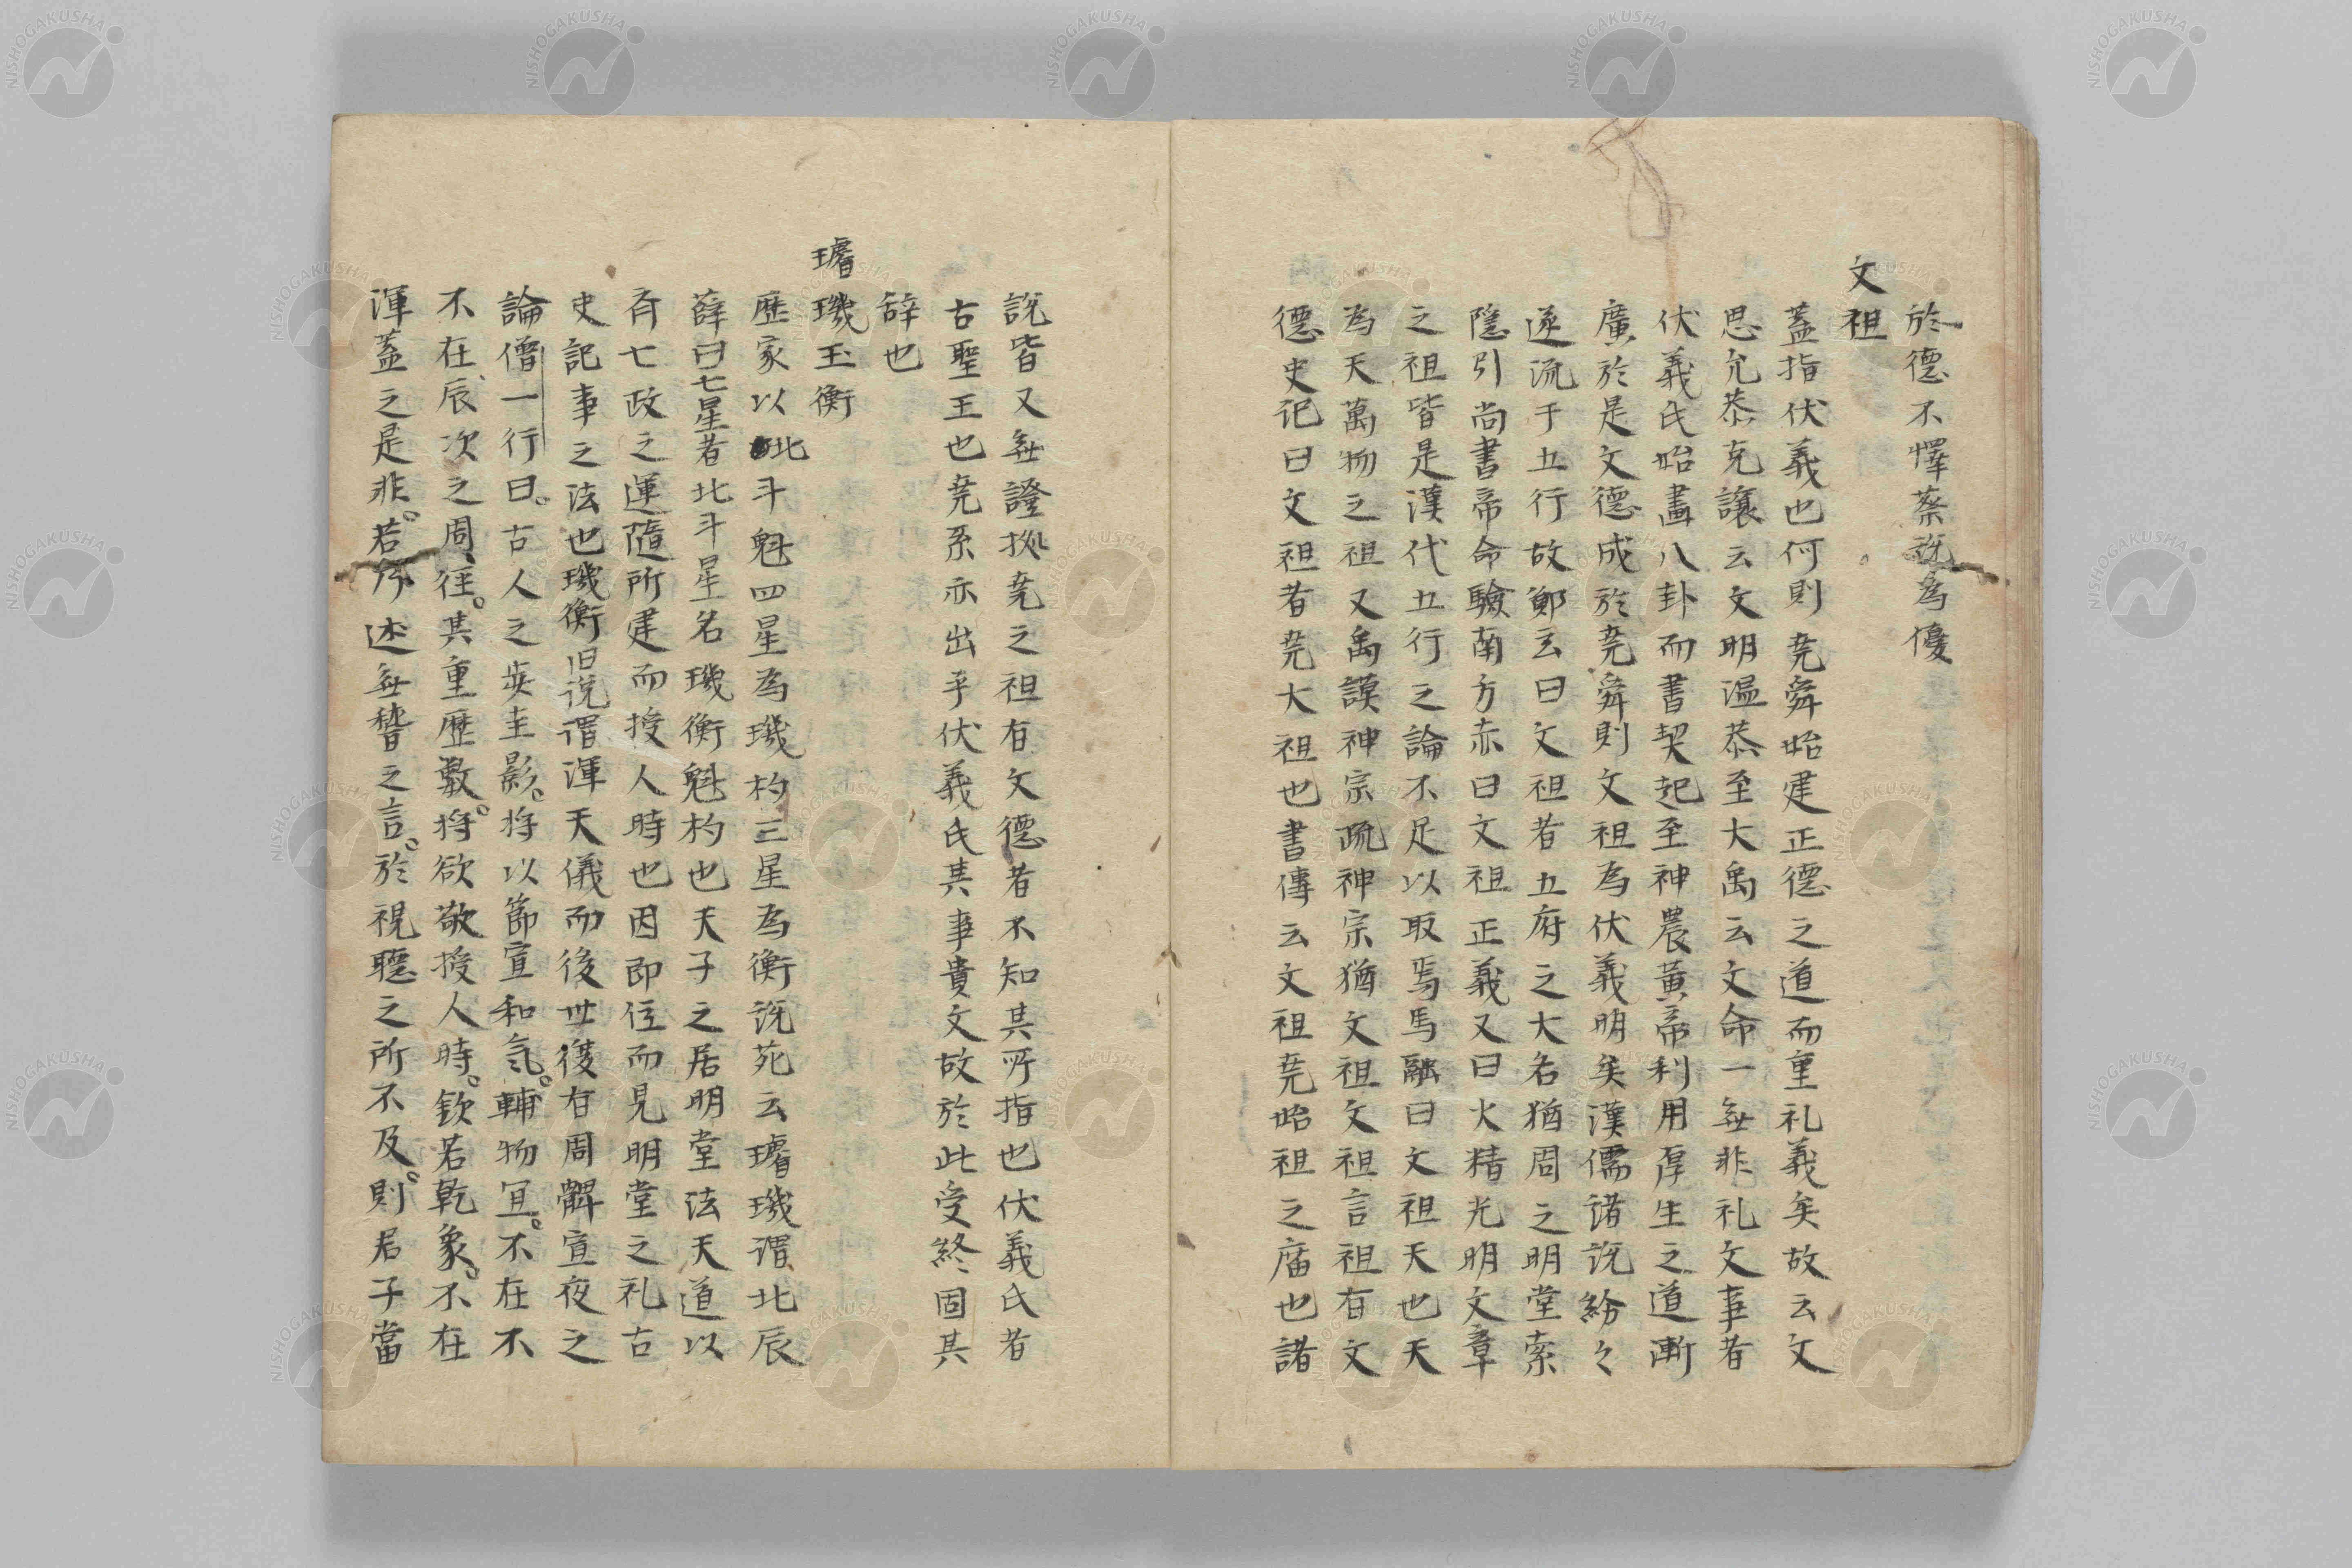 於德不懌蔡說為優
文祖
蓋指伏義也何則堯舜始建正德之道而重礼義矣故云文
思允恭克讓云文明温恭至大禹云文命一無非礼文事者
伏義氏始畫八卦而書契起至神農黃帝利用厚生之道漸
廣於是文德成於堯舜則文祖為伏義明矣漢儒諸說紛々
逐流于五行故鄭玄曰文祖者五府之大名猶周之明堂索
隱引尚書帝命驗南方赤曰文祖正義又曰火精光明文章
之祖皆是漢代五行之論不足以取焉馬融曰文祖天也天
為天萬物之祖又禹謨神宗疏神宗猶文祖文祖言祖有文
德史记曰文祖者堯大祖也書傳云文祖堯始祖之庿也諸
說皆又無證拠堯之祖有文德者不知其所指也伏義氏者
古聖王也堯系亦出乎伏義氏其事貴文故於此受終固其
辞也
璿璣玉衡
歴家以北斗魁四星為璣杓三星為衡說苑云璿璣謂北辰
薛曰七星者北斗星名璣衡魁杓也天子之居明堂法天道以
斉七政之運隨所建而授人時也因即位而見明堂之礼古
史記事之法也璣衡旧說謂渾天儀而後世復有周髀宣夜之
論僧一行曰。古人之步圭影。将以節宣和気。輔物宜。不在不
不在辰次之周徑。其重歴數。将欲敬授人時。欽若乾象。不在
渾蓋之是非。若所述無稽之言。於視聴之所不及。則君子當